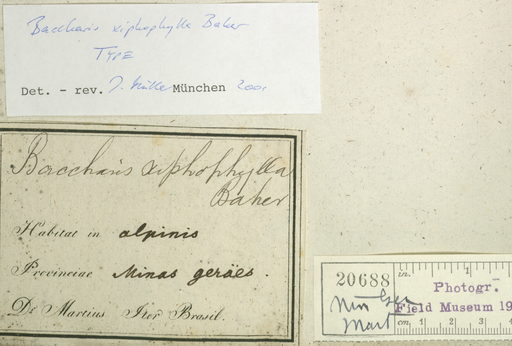 Baccharis xiphophylla Baker
TYPE
Det. - rev. J. Müller München 2001
Baccharis xiphophylla
Baker
Habitat in alpinis
Provinciae Minas geräes.
Dr Martius Iter Brasil.
20688
in. 1
Photogr.
Field Museum 19
Mart
cm. 1 2 3 4